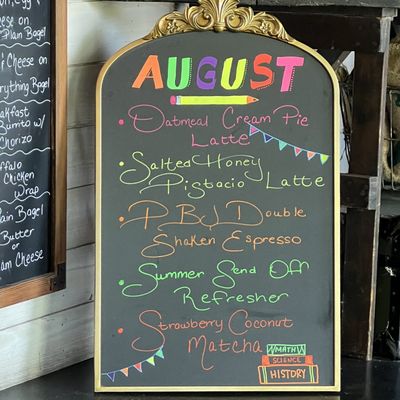 AUGUST
• Oatmeal Cream Pie
Latte
• Salted Honey
Pistacio Latte
• PB&J Double
Shaken Espresso
• Summer Send Off
Refresher
• Strawberry Coconut
Matcha
MATH
SCIENCE
HISTORY
Plain Bagel
Cheese on
Bagel
Burrito w/
Chorizo
Chicken
Wrap
Plain Bagel
Butter
or
Jam Cheese on